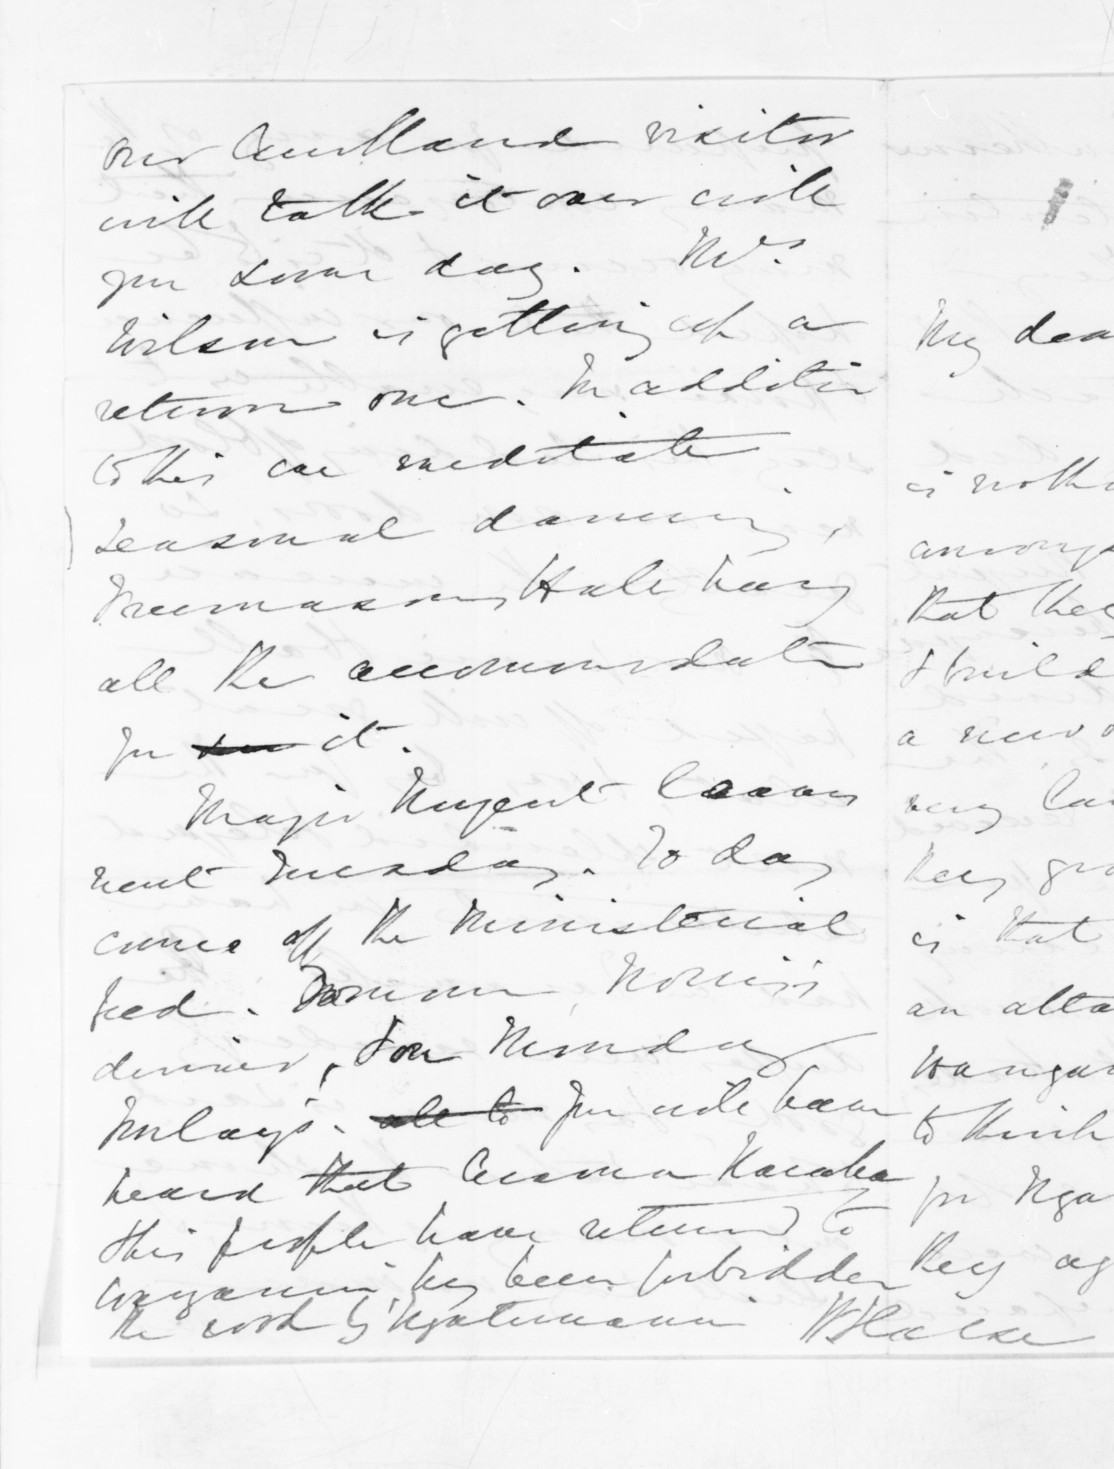 our Auckland visitor
will talk it over with
you some day. Mrs.
Wilson is getting up a
return one. In addition
to this we meditate
seasonal dancing,
Freemasons Hall having
all the accommodation
for it.
Major Nugent leaves
next Tuesday. To day
comes off the Ministerial
feed. Tomorrow, Norris's
dinner, & on Monday
have
heard that Karaka
& his people have returned to
Wanganui, having been forbidden
the road by Ngatimaniapoto
W Halse
My dea
is noth
amongs
that they
& build
a new
very lar
they gro
is that
an atta
Wangan
to think
for Nga
they ag